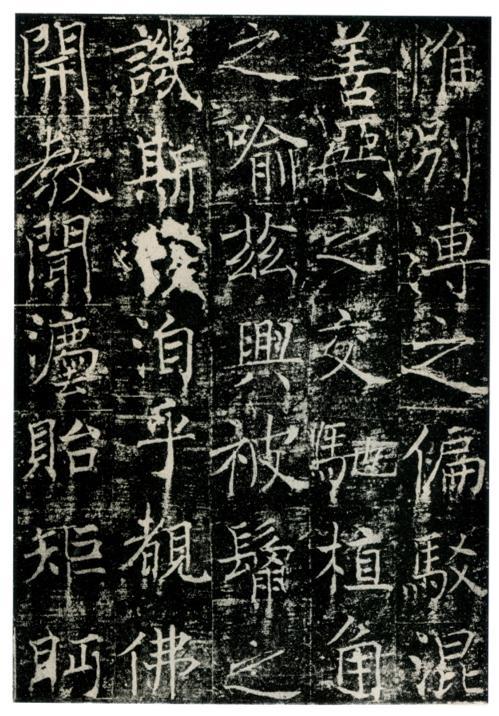 惟別溥之偏駁混
善惡之交馳植角
之喻茲興被鬄之
譏斯 洎乎覩佛
開教聞灋貽矩眄